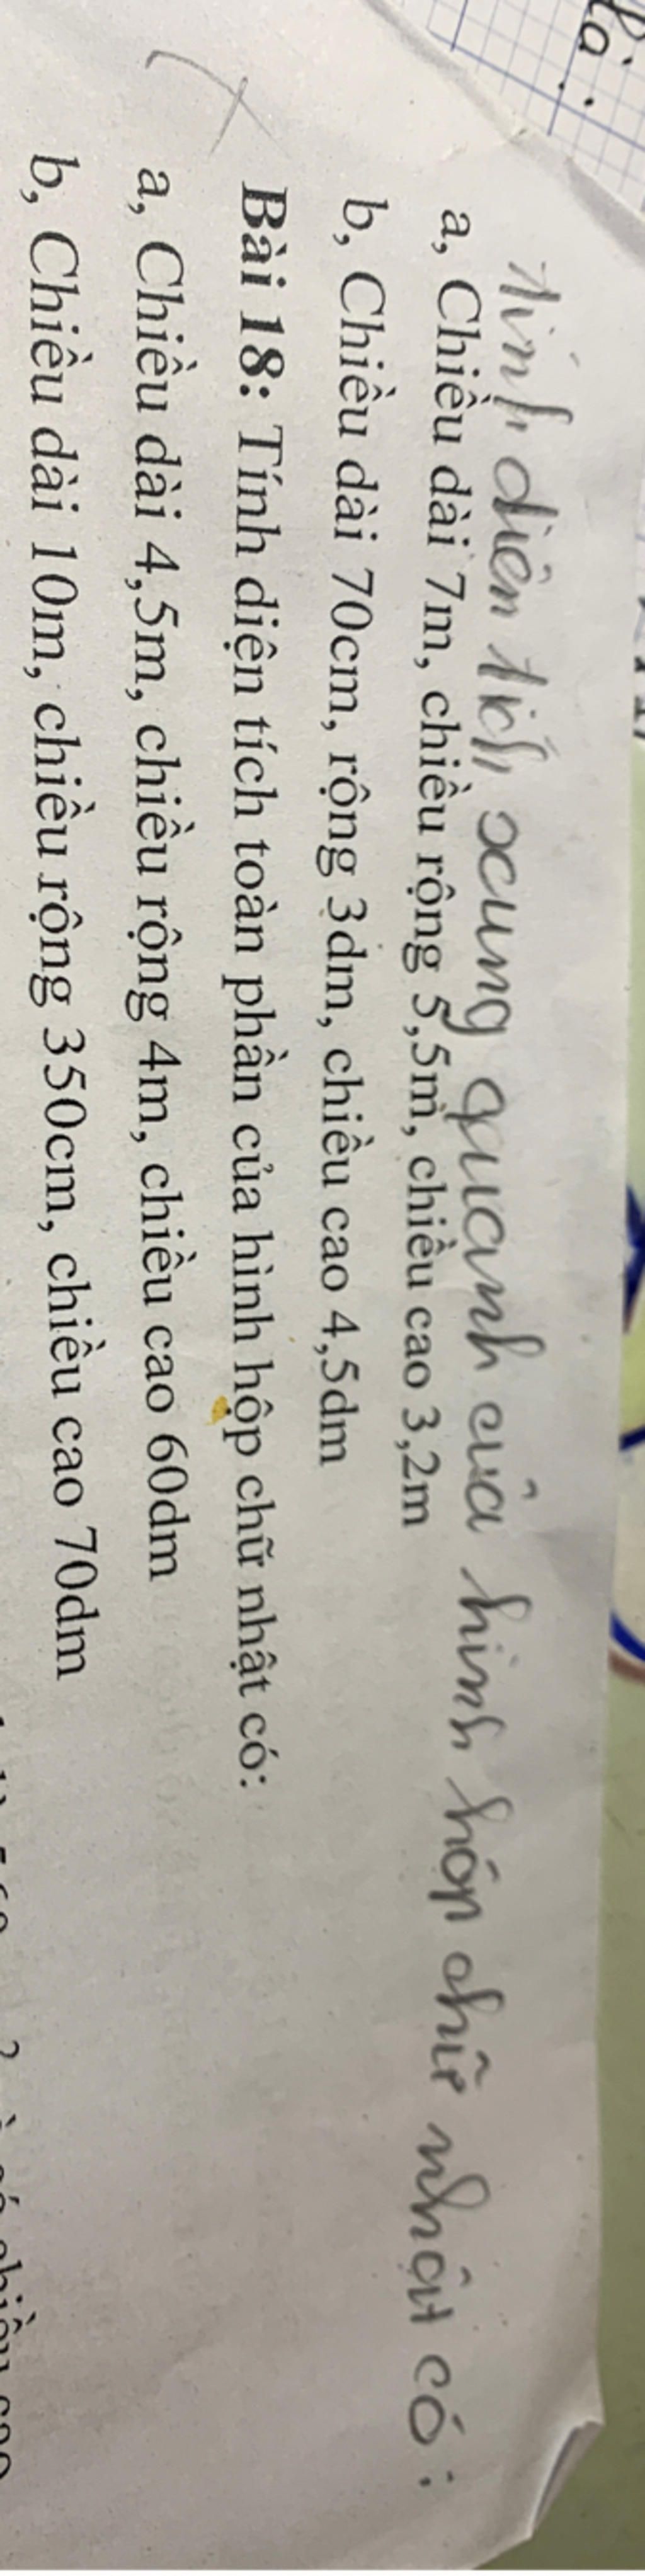 tính diện tích xung quanh của hình hộp chữ nhật có:
a, Chiều dài 7m, chiều rộng 5,5m, chiều cao 3,2m
b, Chiều dài 70cm, rộng 3dm, chiều cao 4,5dm
Bài 18: Tính diện tích toàn phần của hình hộp chữ nhật có:
a, Chiều dài 4,5m, chiều rộng 4m, chiều cao 60dm
b, Chiều dài 10m, chiều rộng 350cm, chiều cao 70dm